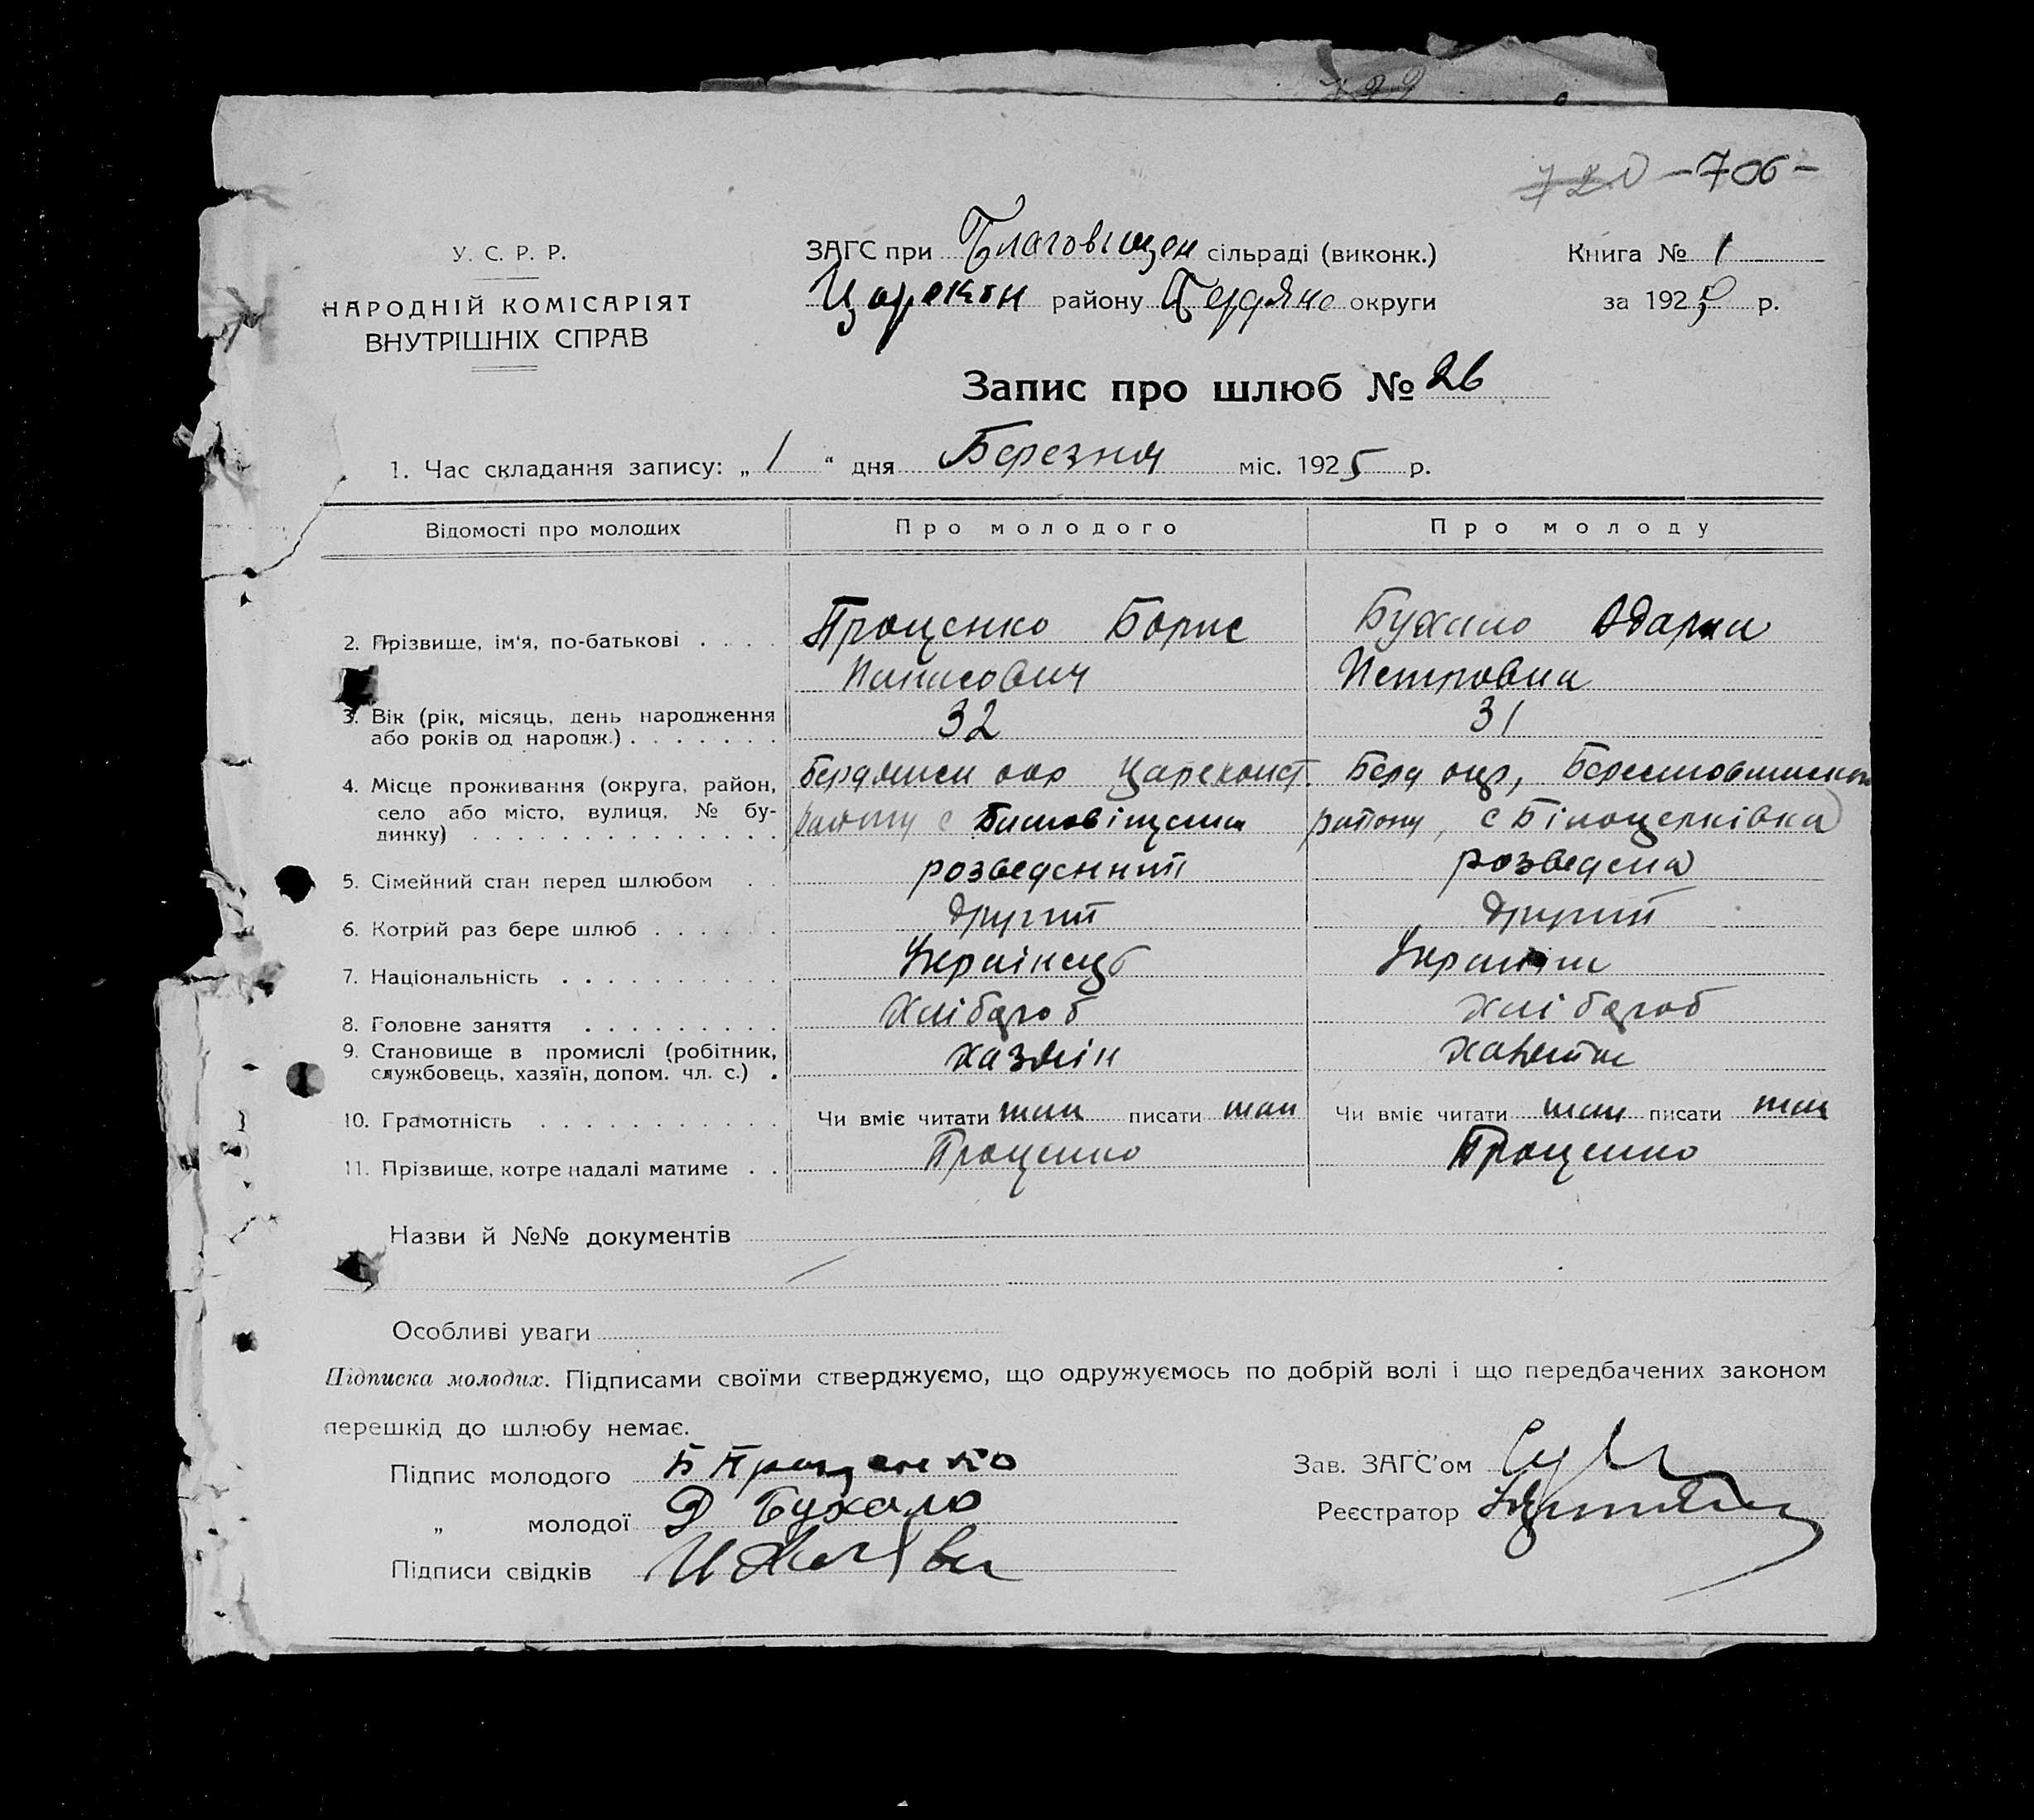 720 -706-
У. С. Р. Р.
НАРОДНІЙ КОМІСАРІЯТ
ВНУТРІШНІХ СПРАВ
ЗАГС при Благовіщен сільраді (виконк.)
Царекон району Бердянс округи
Книга № 1
за 1925 р.
Запис про шлюб № 26
1. Час складання запису: „ 1 “ дня Березня міс. 1925 р.
Відомості про молодих Про молодого Про молоду
2. Прізвище, ім'я, по-батькові . . . . Проценко Борис Бухало Одарка
Панасович Петровна
3. Вік (рік, місяць, день народження
або років од народж.) . . . . . . . 32 31
4. Місце проживання (округа, район, Бердянськ окр Царекост. Берд окр,
село або місто, вулиця, № бу- району с Благовіщенка району, с Білоцерківка
динку) . . . . . . . . . . . . . .
5. Сімейний стан перед шлюбом . . розведенний розведена
6. Котрий раз бере шлюб . . . . . . другий другий
7. Національність . . . . . . . . . . Українець Українка
8. Головне заняття . . . . . . . . . Хлібороб хлібороб
9. Становище в промислі (робітник,
службовець, хазяїн, допом. чл. с.) . хазяін
10. Грамотність . . . . . . . . . . . Чи вміє читати так писати так Чи вміє читати так писати так
11. Прізвище, котре надалі матиме . . Проценко Проценко
Назви й №№ документів
Особливі уваги
Підписка молодих. Підписами своїми стверджуємо, що одружуємось по добрій волі і що передбачених законом
перешкід до шлюбу немає.
Підпис молодого Б Проценко
„ молодої Д Бухало
Підписи свідків
Зав. ЗАГС'ом
Реєстратор